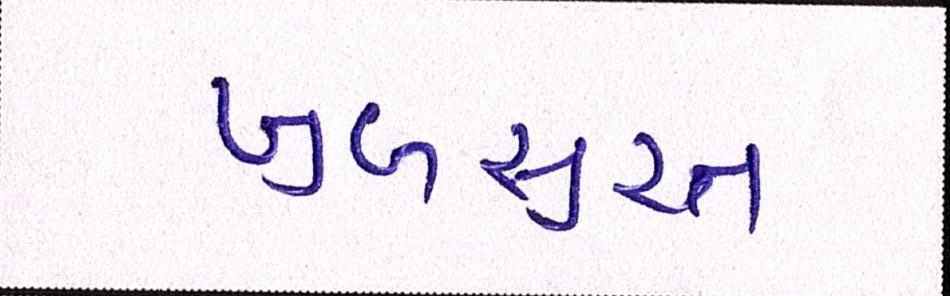 ખુબસુરત